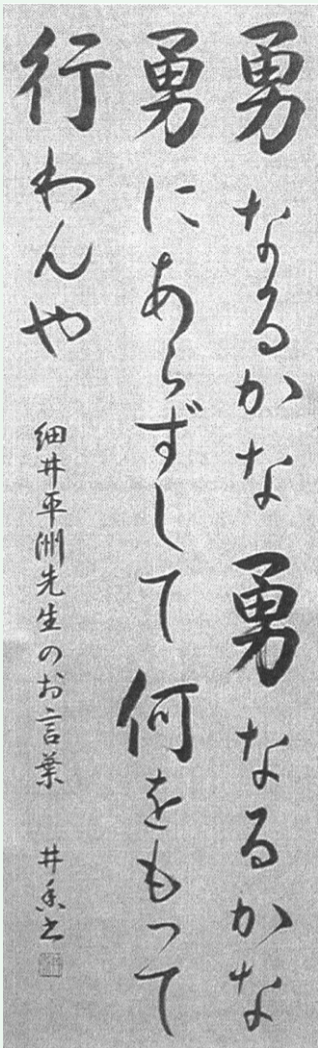 勇なるかな勇なるかな
勇にあらずして何をもって
行わんや
細井平洲先生のお言葉
井香之